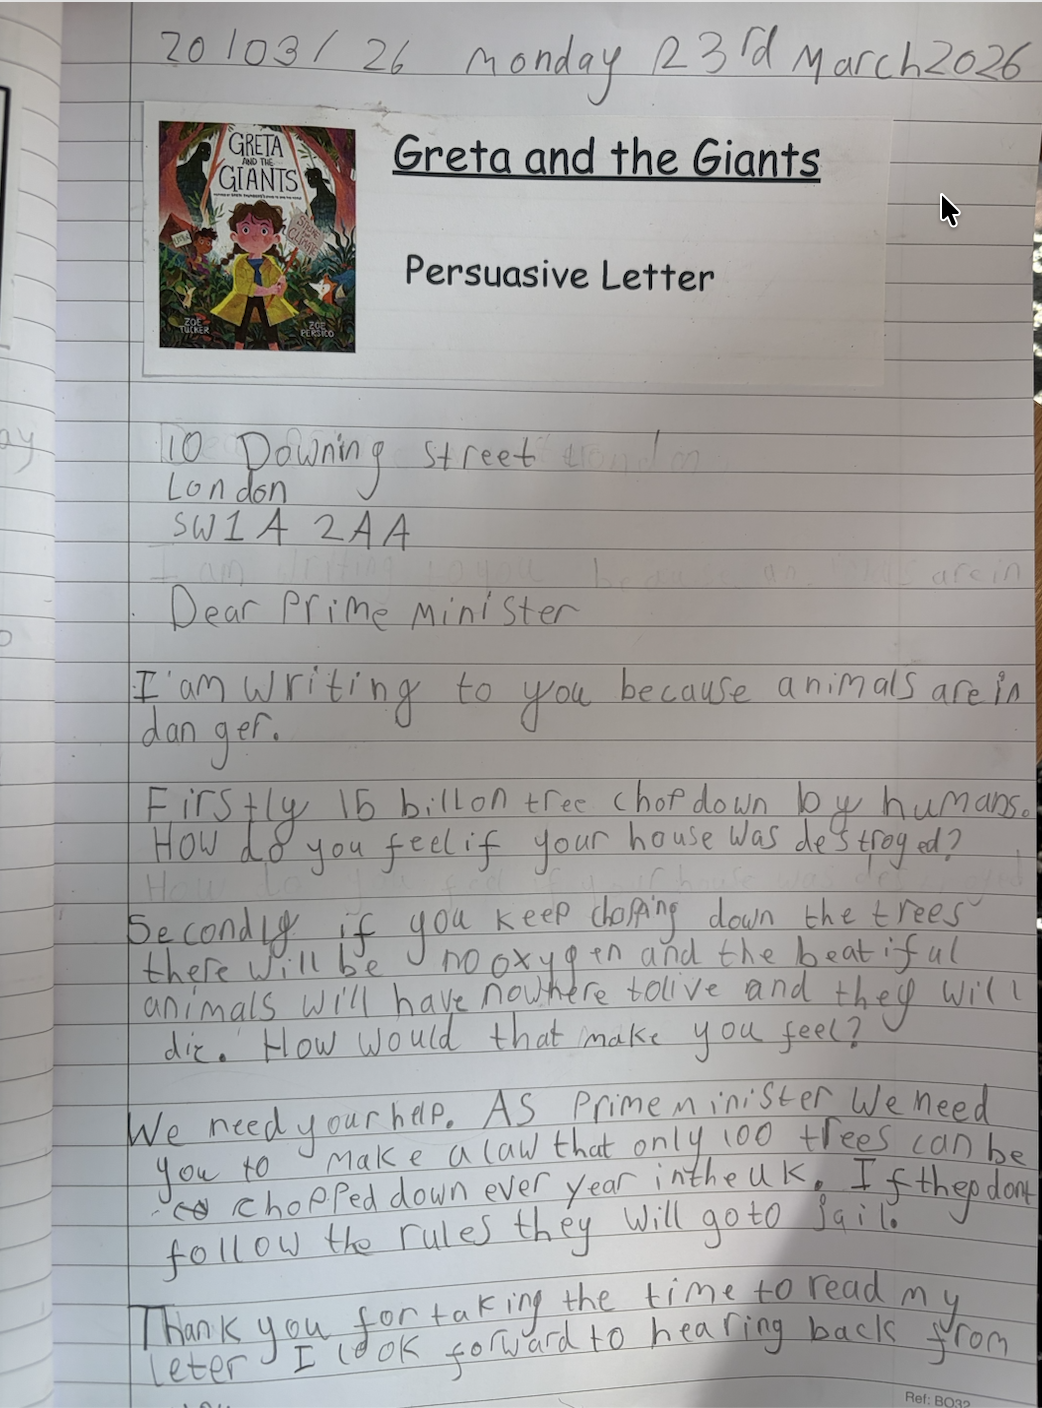 20/03/26 monday 23rd March2026
GRETA
AND THE
GIANTS
ZOË
TUCKER
ZOE
PERSICO
Greta and the Giants
Persuasive Letter
10 Downing street
London
SW1A 2AA
Dear Prime Minister
I'am writing to you because animals are in
danger.
Firstly 15 billon tree chop down by humans.
How do you feel if your house was destroyed?
Secondly if you keep choping down the trees
there will be no oxygen and the beatiful
animals will have nowhere to live and they will
die. How would that make you feel?
We need your help. As Prime minister we need
you to make a law that only 100 trees can be
chopped down ever year in the uk. If they dont
follow the rules they will go to jail.
Thank you for taking the time to read my
leter I look forward to hearing back from
Ref: BO32